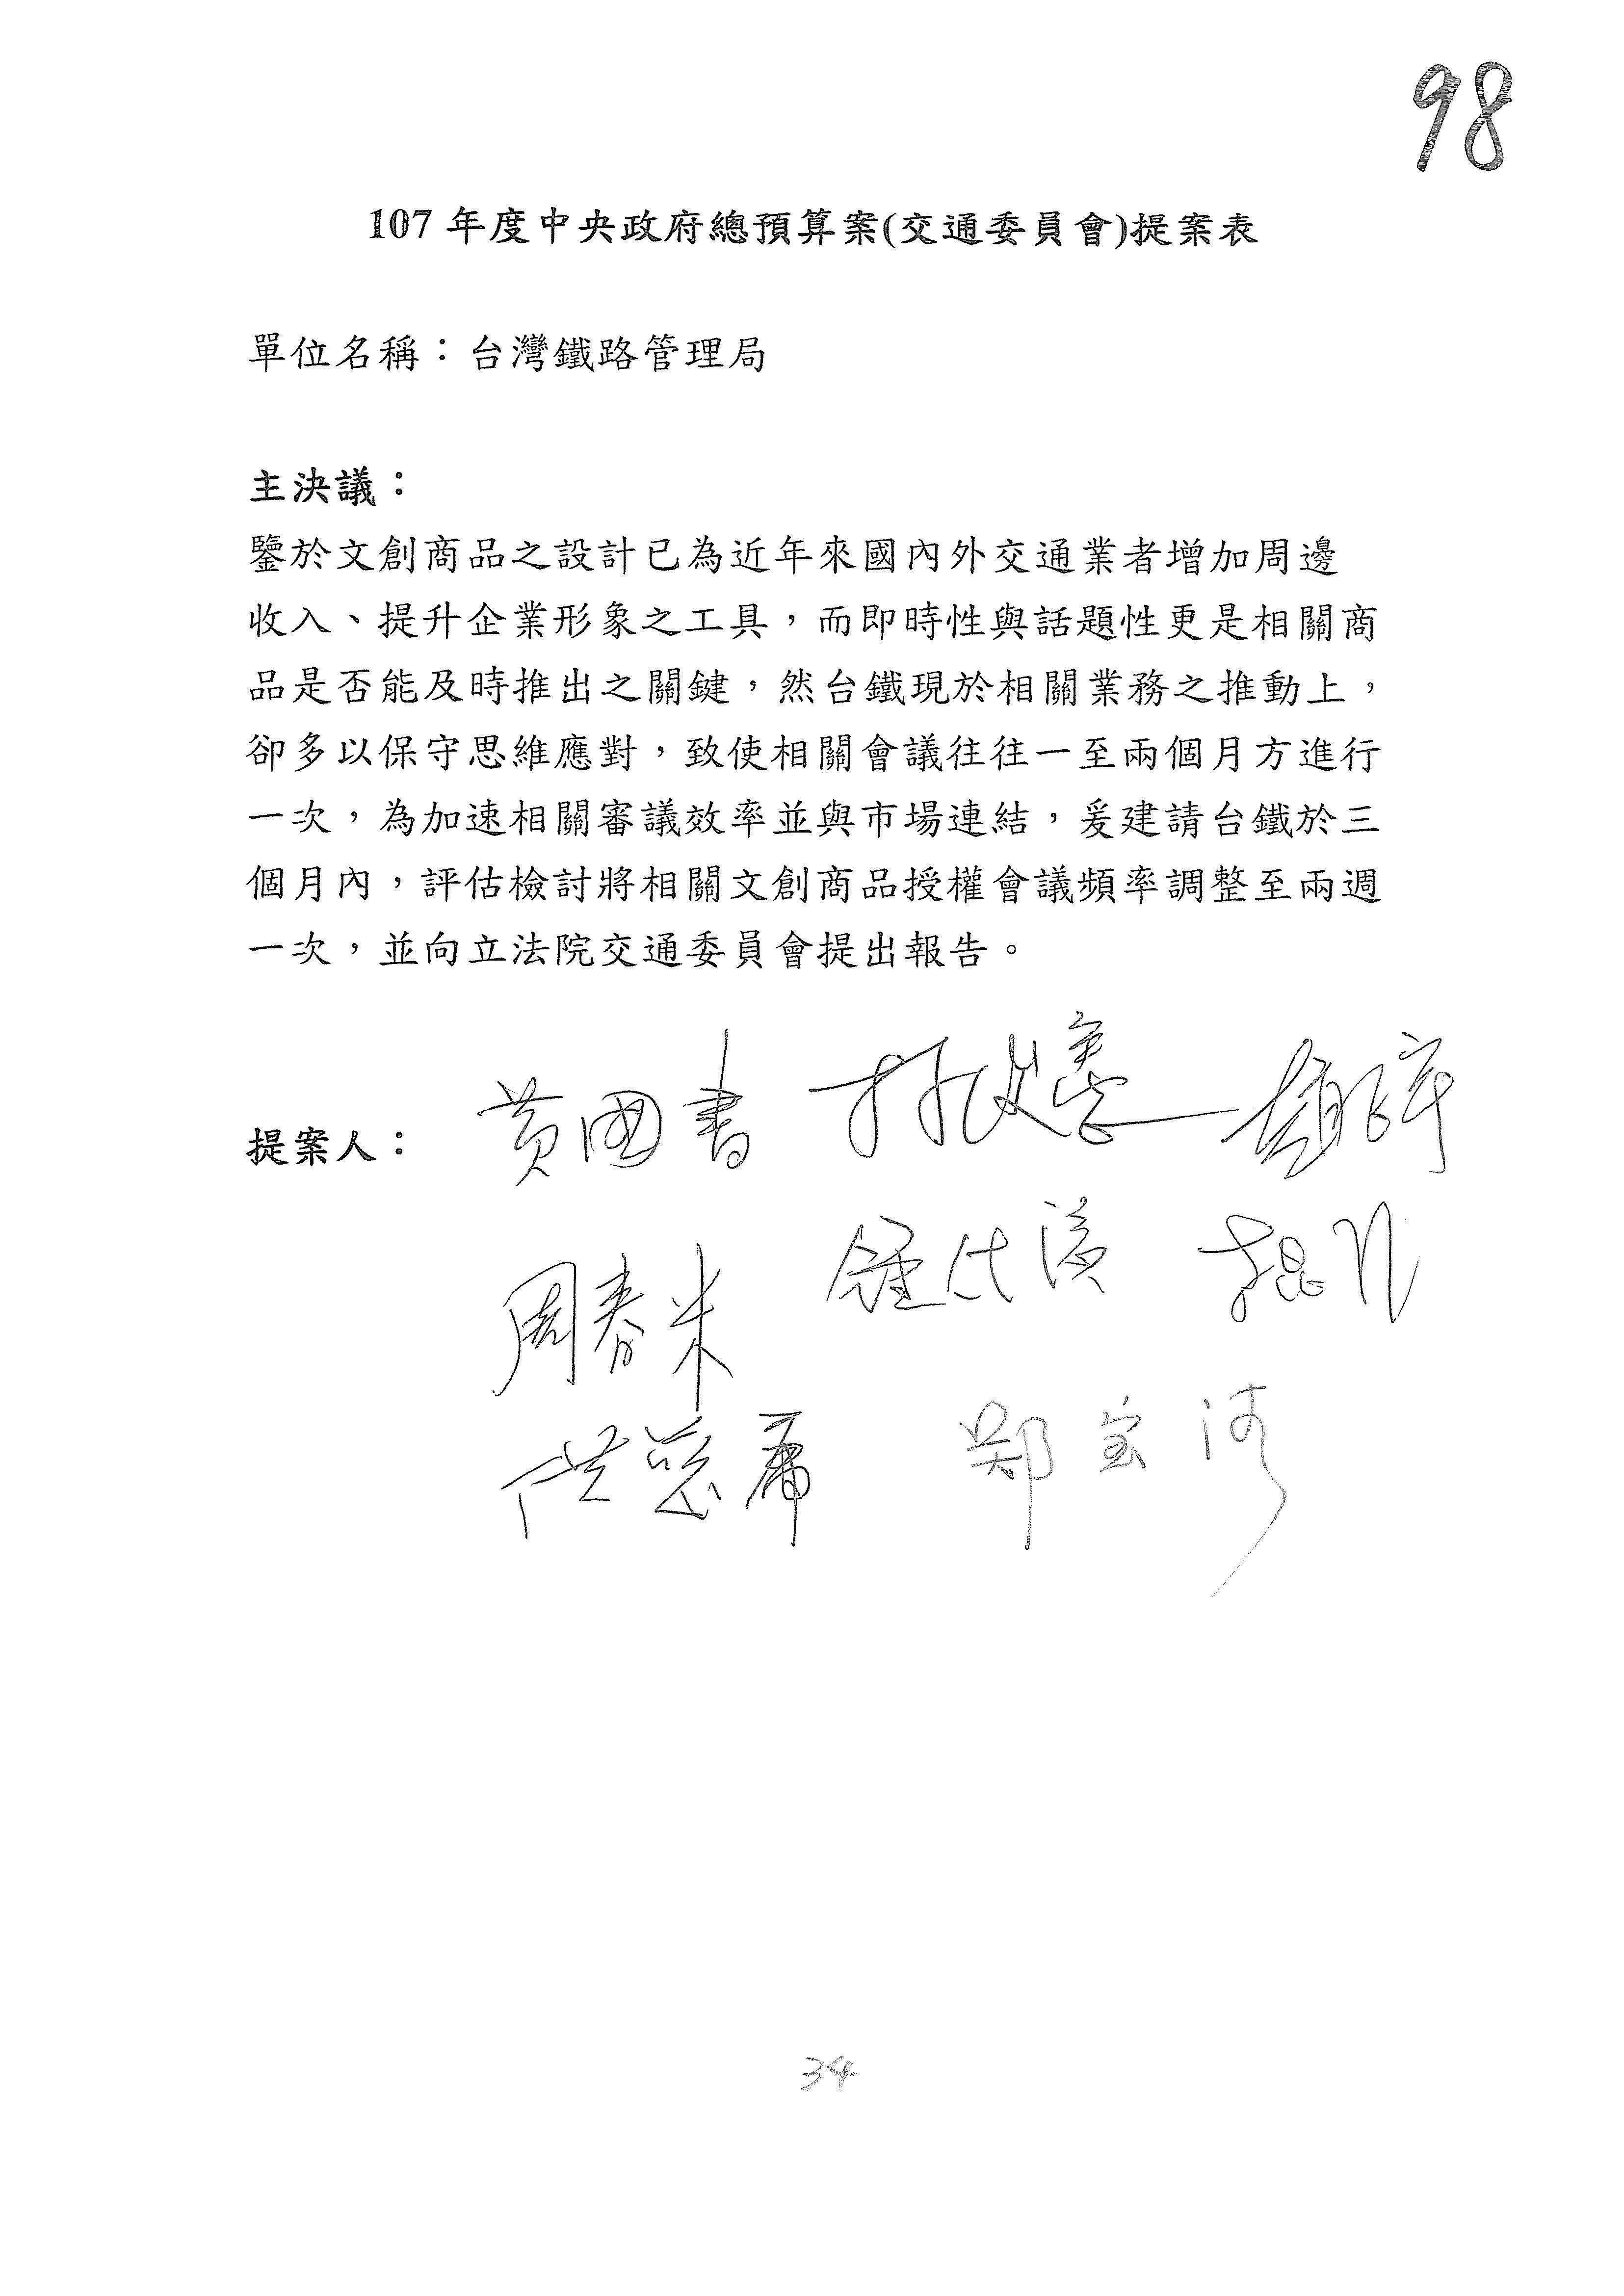 98
107 年度中央政府總預算案(交通委員會)提案表
單位名稱：台灣鐵路管理局
主決議：
鑒於文創商品之設計已為近年來國內外交通業者增加周邊
收入、提升企業形象之工具，而即時性與話題性更是相關商
品是否能及時推出之關鍵，然台鐵現於相關業務之推動上，
卻多以保守思維應對，致使相關會議往往一至兩個月方進行
一次，為加速相關審議效率並與市場連結，爰建請台鐵於三
個月內，評估檢討將相關文創商品授權會議頻率調整至兩週
一次，並向立法院交通委員會提出報告。
提案人：
黃國書
周春米
洪慈庸 鄭寶清
34